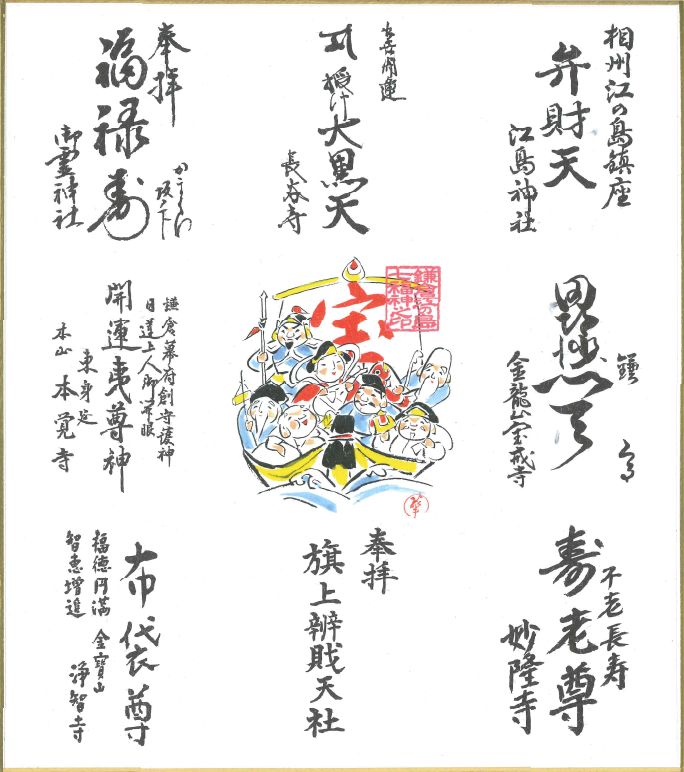 相州江の島鎮座
弁財天
江島神社
授け大黒天
長谷寺
奉拝
福禄寿
御霊神社
鎌倉
金龍山宝戒寺
宝
鎌倉江の島
七福神之印
鎌倉幕府創守護神
日蓮上人御開眼
開運夷尊神
東身延
本山 本覚寺
不老長寿
寿老尊
妙隆寺
奉拝
旗上辨戝天社
布袋尊
福徳円満 金寶山
智恵増進 浄智寺